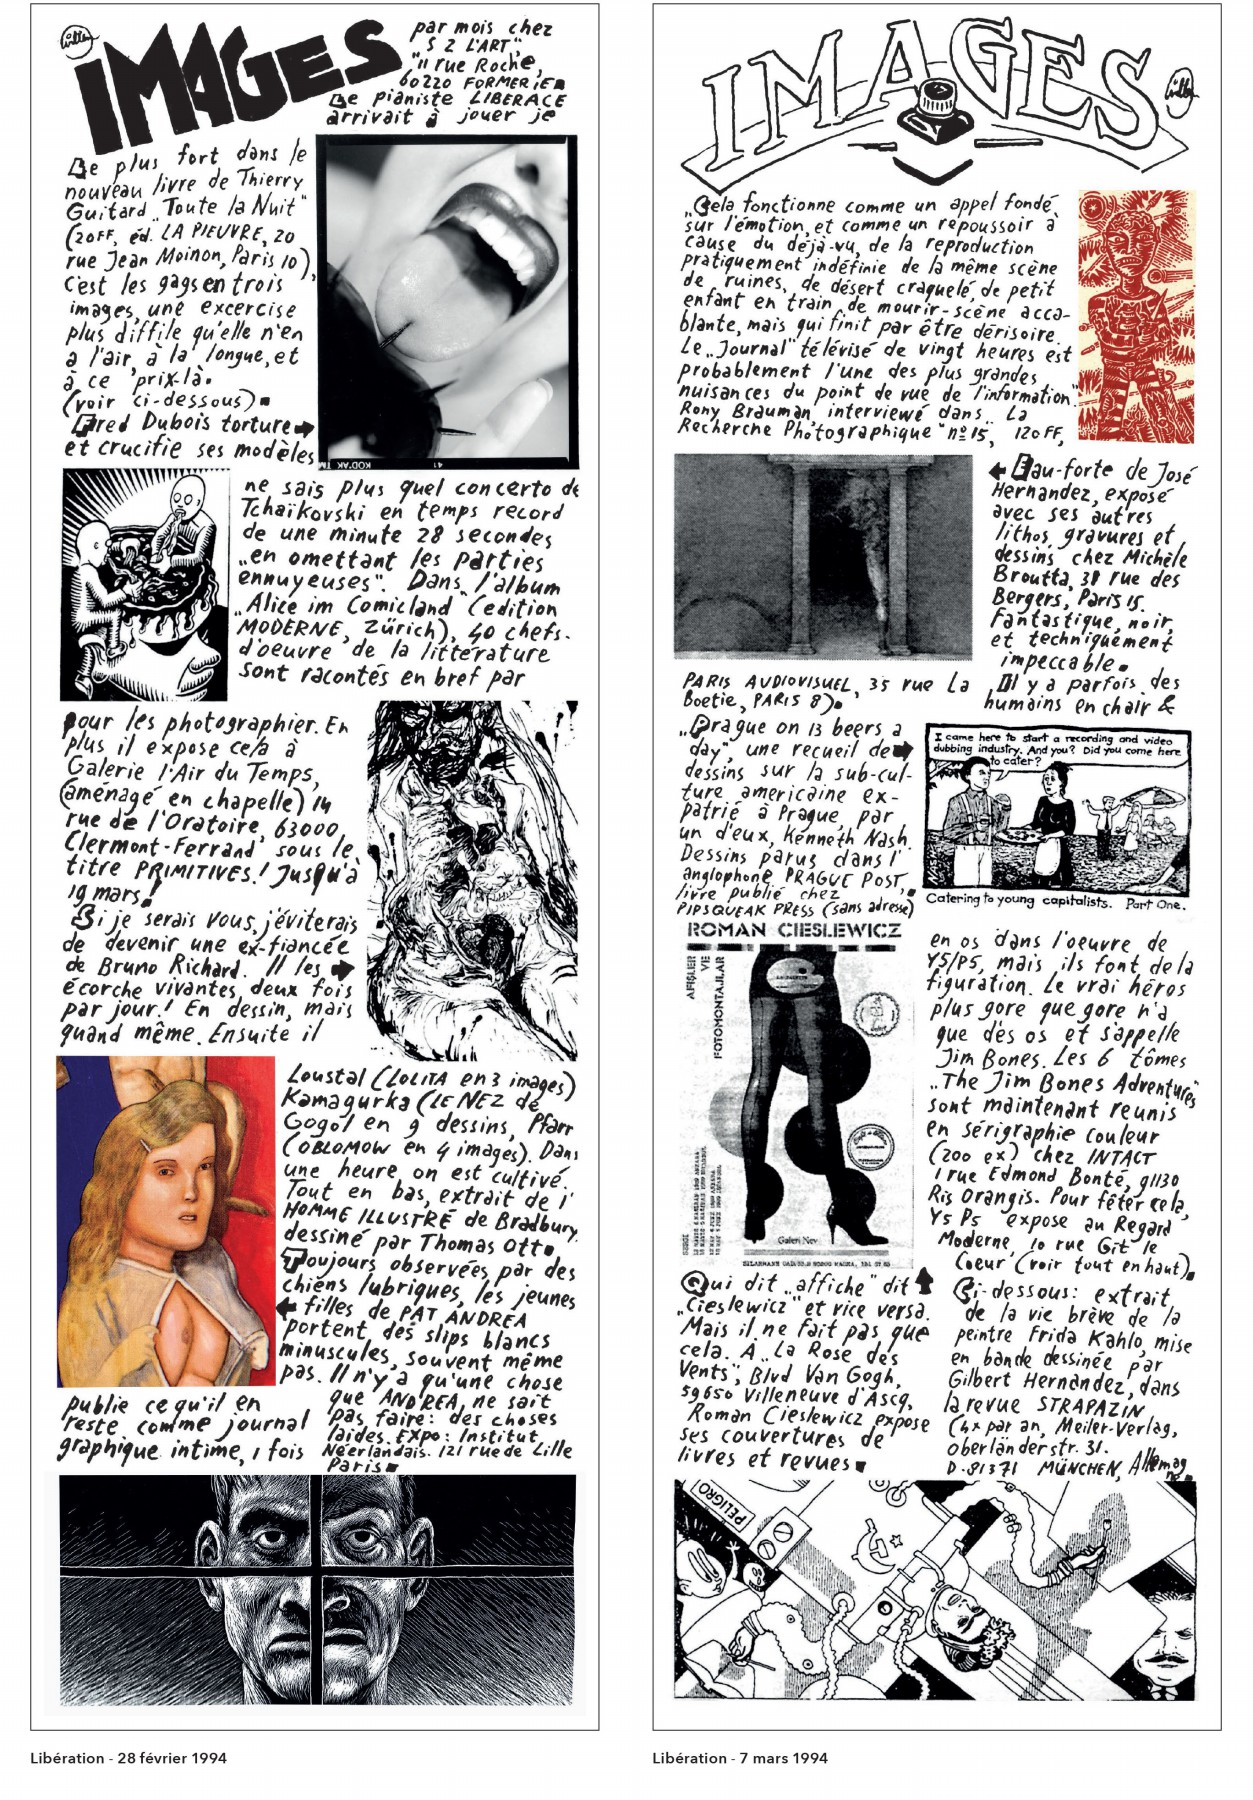 Willem
IMAGES
Le plus fort dans le
nouveau livre de Thierry
Guitard „Toute la Nuit"
(20FF, éd. LA PIEUVRE, 20
rue Jean Moinon, Paris 10),
c'est les gags en trois
images, une excercise
plus diffile qu'elle n'en
a l'air, à la longue, et
à ce prix-là.
(voir ci-dessous)
Fred Dubois torture
et crucifie ses modèles
pour les photographier. En
plus il expose cela à
Galerie l'Air du Temps,
(aménagé en chapelle) 14
rue de l'Oratoire, 63000,
Clermont-Ferrand, sous le
titre PRIMITIVES! Jusqu'à
19 mars!
Si je serais vous, j'éviterais
de devenir une ex-fiancée
de Bruno Richard. Il les
écorche vivantes, deux fois
par jour! En dessin, mais
quand même. Ensuite il
publie ce qu'il en
reste comme journal
graphique intime, 1 fois
par mois chez
"S 2 L'ART",
"11 rue Roche,
60220 FORMERIE
Le pianiste LIBERACE
arrivait à jouer je
KODAK TM
41
ne sais plus quel concerto de
Tchaïkovski en temps record
de une minute 28 secondes
„en omettant les parties
ennuyeuses". Dans l'album
„Alice im Comicland (edition
MODERNE, Zürich), 40 chefs-
d'oeuvre de la littérature
sont racontés en bref par
Loustal (LOLITA en 3 images)
Kamagurka (LE NEZ de
Gogol en 9 dessins, Pfarr
(OBLOMOW en 4 images). Dans
une heure, on est cultivé.
Tout en bas, extrait de l'
HOMME ILLUSTRÉ de Bradbury,
dessiné par Thomas Ott.
Toujours observées par des
chiens lubriques, les jeunes
filles de PAT ANDREA
portent des slips blancs
minuscules, souvent même
pas. Il n'y a qu'une chose
que ANDREA, ne sait
pas faire: des choses
laides. Expo: Institut
Néerlandais. 121 rue de Lille
Paris
Libération - 28 février 1994
IMAGES
Willem
„Cela fonctionne comme un appel fondé
sur l'émotion, et comme un repoussoir à
cause du déjà-vu, de la reproduction
pratiquement indéfinie de la même scène
de ruines, de désert craquelé, de petit
enfant en train de mourir-scène acca-
blante, mais qui finit par être dérisoire.
Le „Journal" télévisé de vingt heures est
probablement l'une des plus grandes
nuisances du point de vue de l'information"
Rony Brauman, interviewé dans „La
Recherche Photographique" nº 15, 120FF,
PARIS AUDIOVISUEL, 35 rue La
Boetie, PARIS 8).
„Prague on 13 beers a
day", une recueil de
dessins sur la sub-cul-
ture americaine ex-
patrié à Prague, par
un d'eux, Kenneth Nash.
Dessins parus dans l'
anglophone PRAGUE POST,
livre publié chez
PIPSQUEAK PRESS (sans adresse)
ROMAN CIESLEWICZ
AFIŞLER
VE
FOTOMONTAJLAR
Galeri Nev
Qui dit „affiche" dit
„Cieslewicz" et vice versa.
Mais il ne fait pas que
cela. A „La Rose des
Vents", Blvd Van Gogh,
59650 Villeneuve d'Ascq,
Roman Cieslewicz expose
ses couvertures de
livres et revues
Eau-forte de José
Hernandez, exposé
avec ses autres
lithos, gravures et
dessins chez Michèle
Broutta, 31 rue des
Bergers, Paris 15.
Fantastique, noir,
et techniquement
impeccable.
Il y a parfois des
humains en chair &
I came here to start a recording and video
dubbing industry. And you? Did you come here
to cater?
NASH
Catering to young capitalists. Part One.
en os dans l'oeuvre de
Y5/P5, mais ils font de la
figuration. Le vrai héros
plus gore que gore n'a
que des os et s'appelle
Jim Bones. Les 6 tômes
„The Jim Bones Adventures"
sont maintenant reunis
en sérigraphie couleur
(200 ex) chez INTACT
1 rue Edmond Bonté, 91130
Ris Orangis. Pour fêter cela,
Y5 P5 expose au Regard
Moderne, 10 rue Gît le
Coeur (voir tout en haut).
Ci-dessous: extrait
de la vie brève de la
peintre Frida Kahlo, mise
en bande dessinée par
Gilbert Hernandez, dans
la revue STRAPAZIN
(4x par an, Meiler-Verlag,
oberländerstr. 31.
D-81371 MÜNCHEN, Allemagne.
PELIGRO
Libération - 7 mars 1994